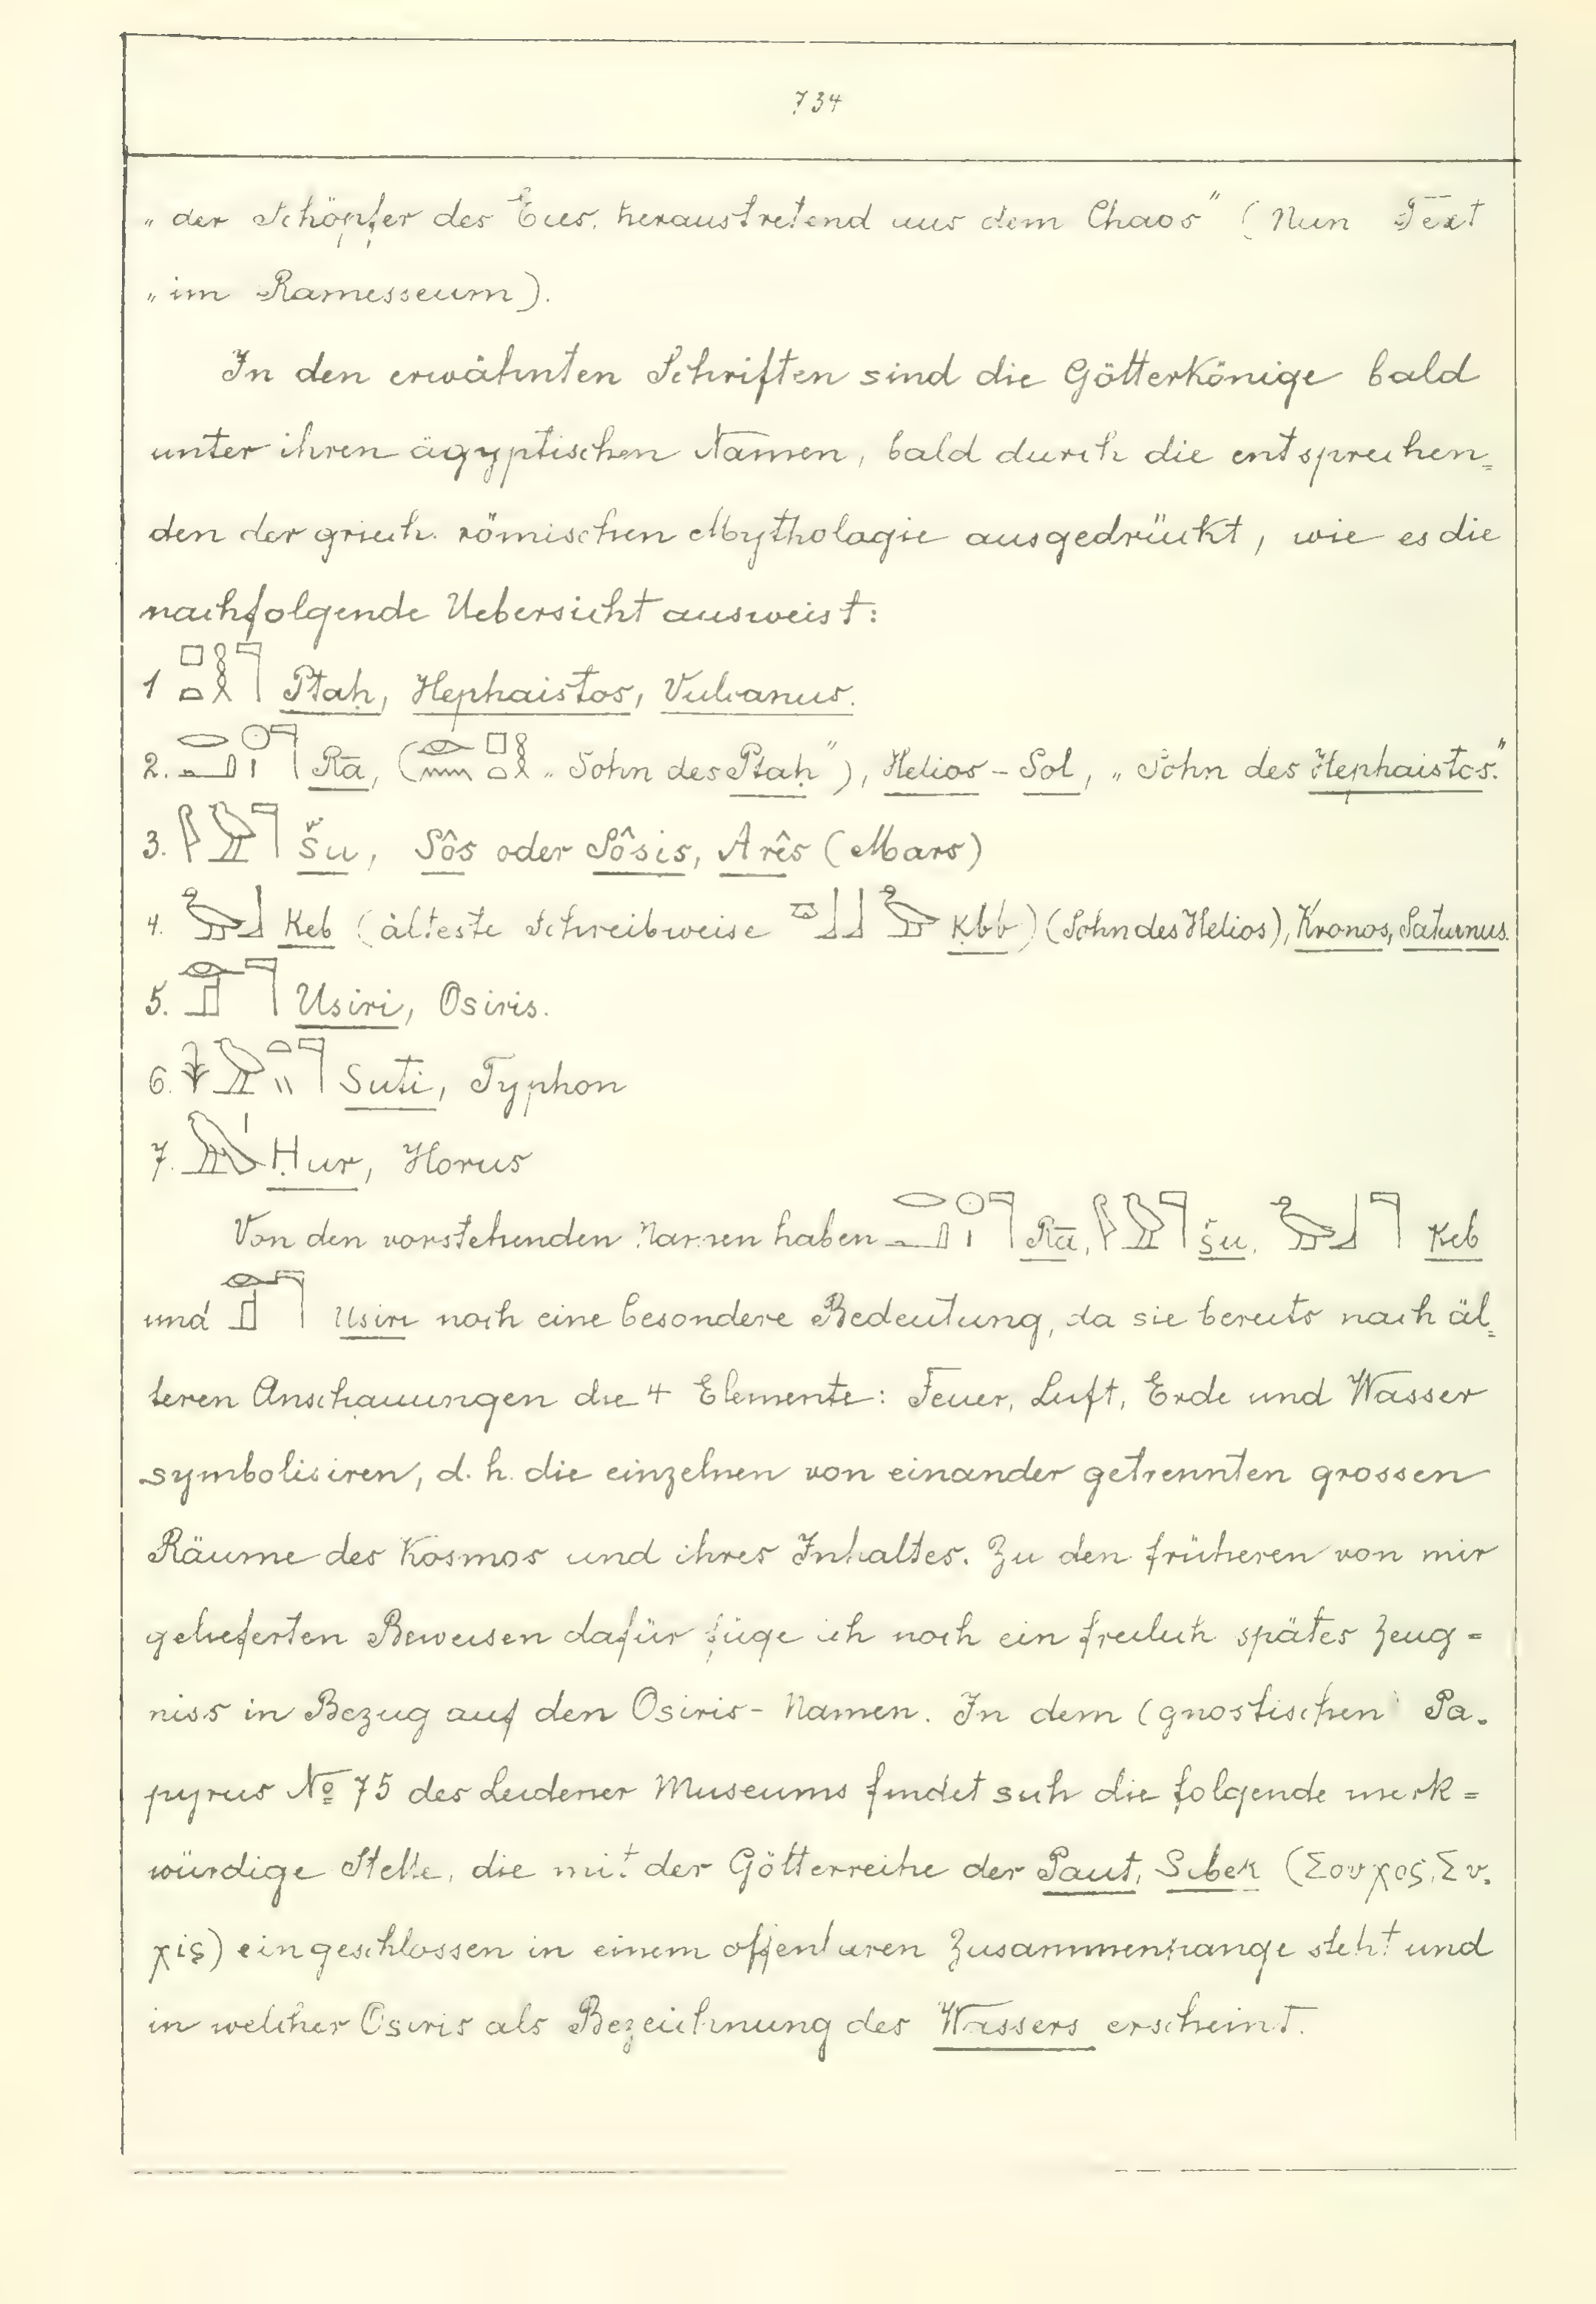 734
„ der Schöpfer des Eies, heraustretend aus dem Chaos" (Nun Text
„ im Ramesseum).
In den erwähnten Schriften sind die Götterkönige bald
unter ihren ägyptischen Namen, bald durch die entsprechen=
den der griech. römischen Mythologie ausgedrückt, wie es die
nachfolgende Uebersicht ausweist:
1 Ptaḥ, Hephaistos, Vulcanus.
2. Rā, ( „ Sohn des Ptaḥ"), Helios - Sol, „ Sohn des Hephaistos."
3. Šu, Sôs oder Sôsis, Arês (Mars)
4. Keb (älteste Schreibweise Kbb) (Sohn des Helios), Kronos, Saturnus.
5. Usiri, Osiris.
6. Suti, Typhon
7. Ḥur, Horus
Von den vorstehenden Namen haben Rā, Šu, Keb
und Usiri noch eine besondere Bedeutung, da sie bereits nach äl=
teren Anschauungen die 4 Elemente: Feuer, Luft, Erde und Wasser
symbolisiren, d. h. die einzelnen von einander getrennten grossen
Räume des Kosmos und ihres Inhaltes. Zu den früheren von mir
gelieferten Beweisen dafür füge ich noch ein freilich spätes Zeug=
niss in Bezug auf den Osiris- Namen. In dem (gnostischen Pa.
pyrus № 75 des Leidener Museums findet sich die folgende merk=
würdige Stelle, die mit der Götterreihe der Paut, Sebek (Σουχος, Συ.
χις) eingeschlossen in einem offenbaren Zusammenhange steht und
in welcher Osiris als Bezeichnung des Wassers erscheint.